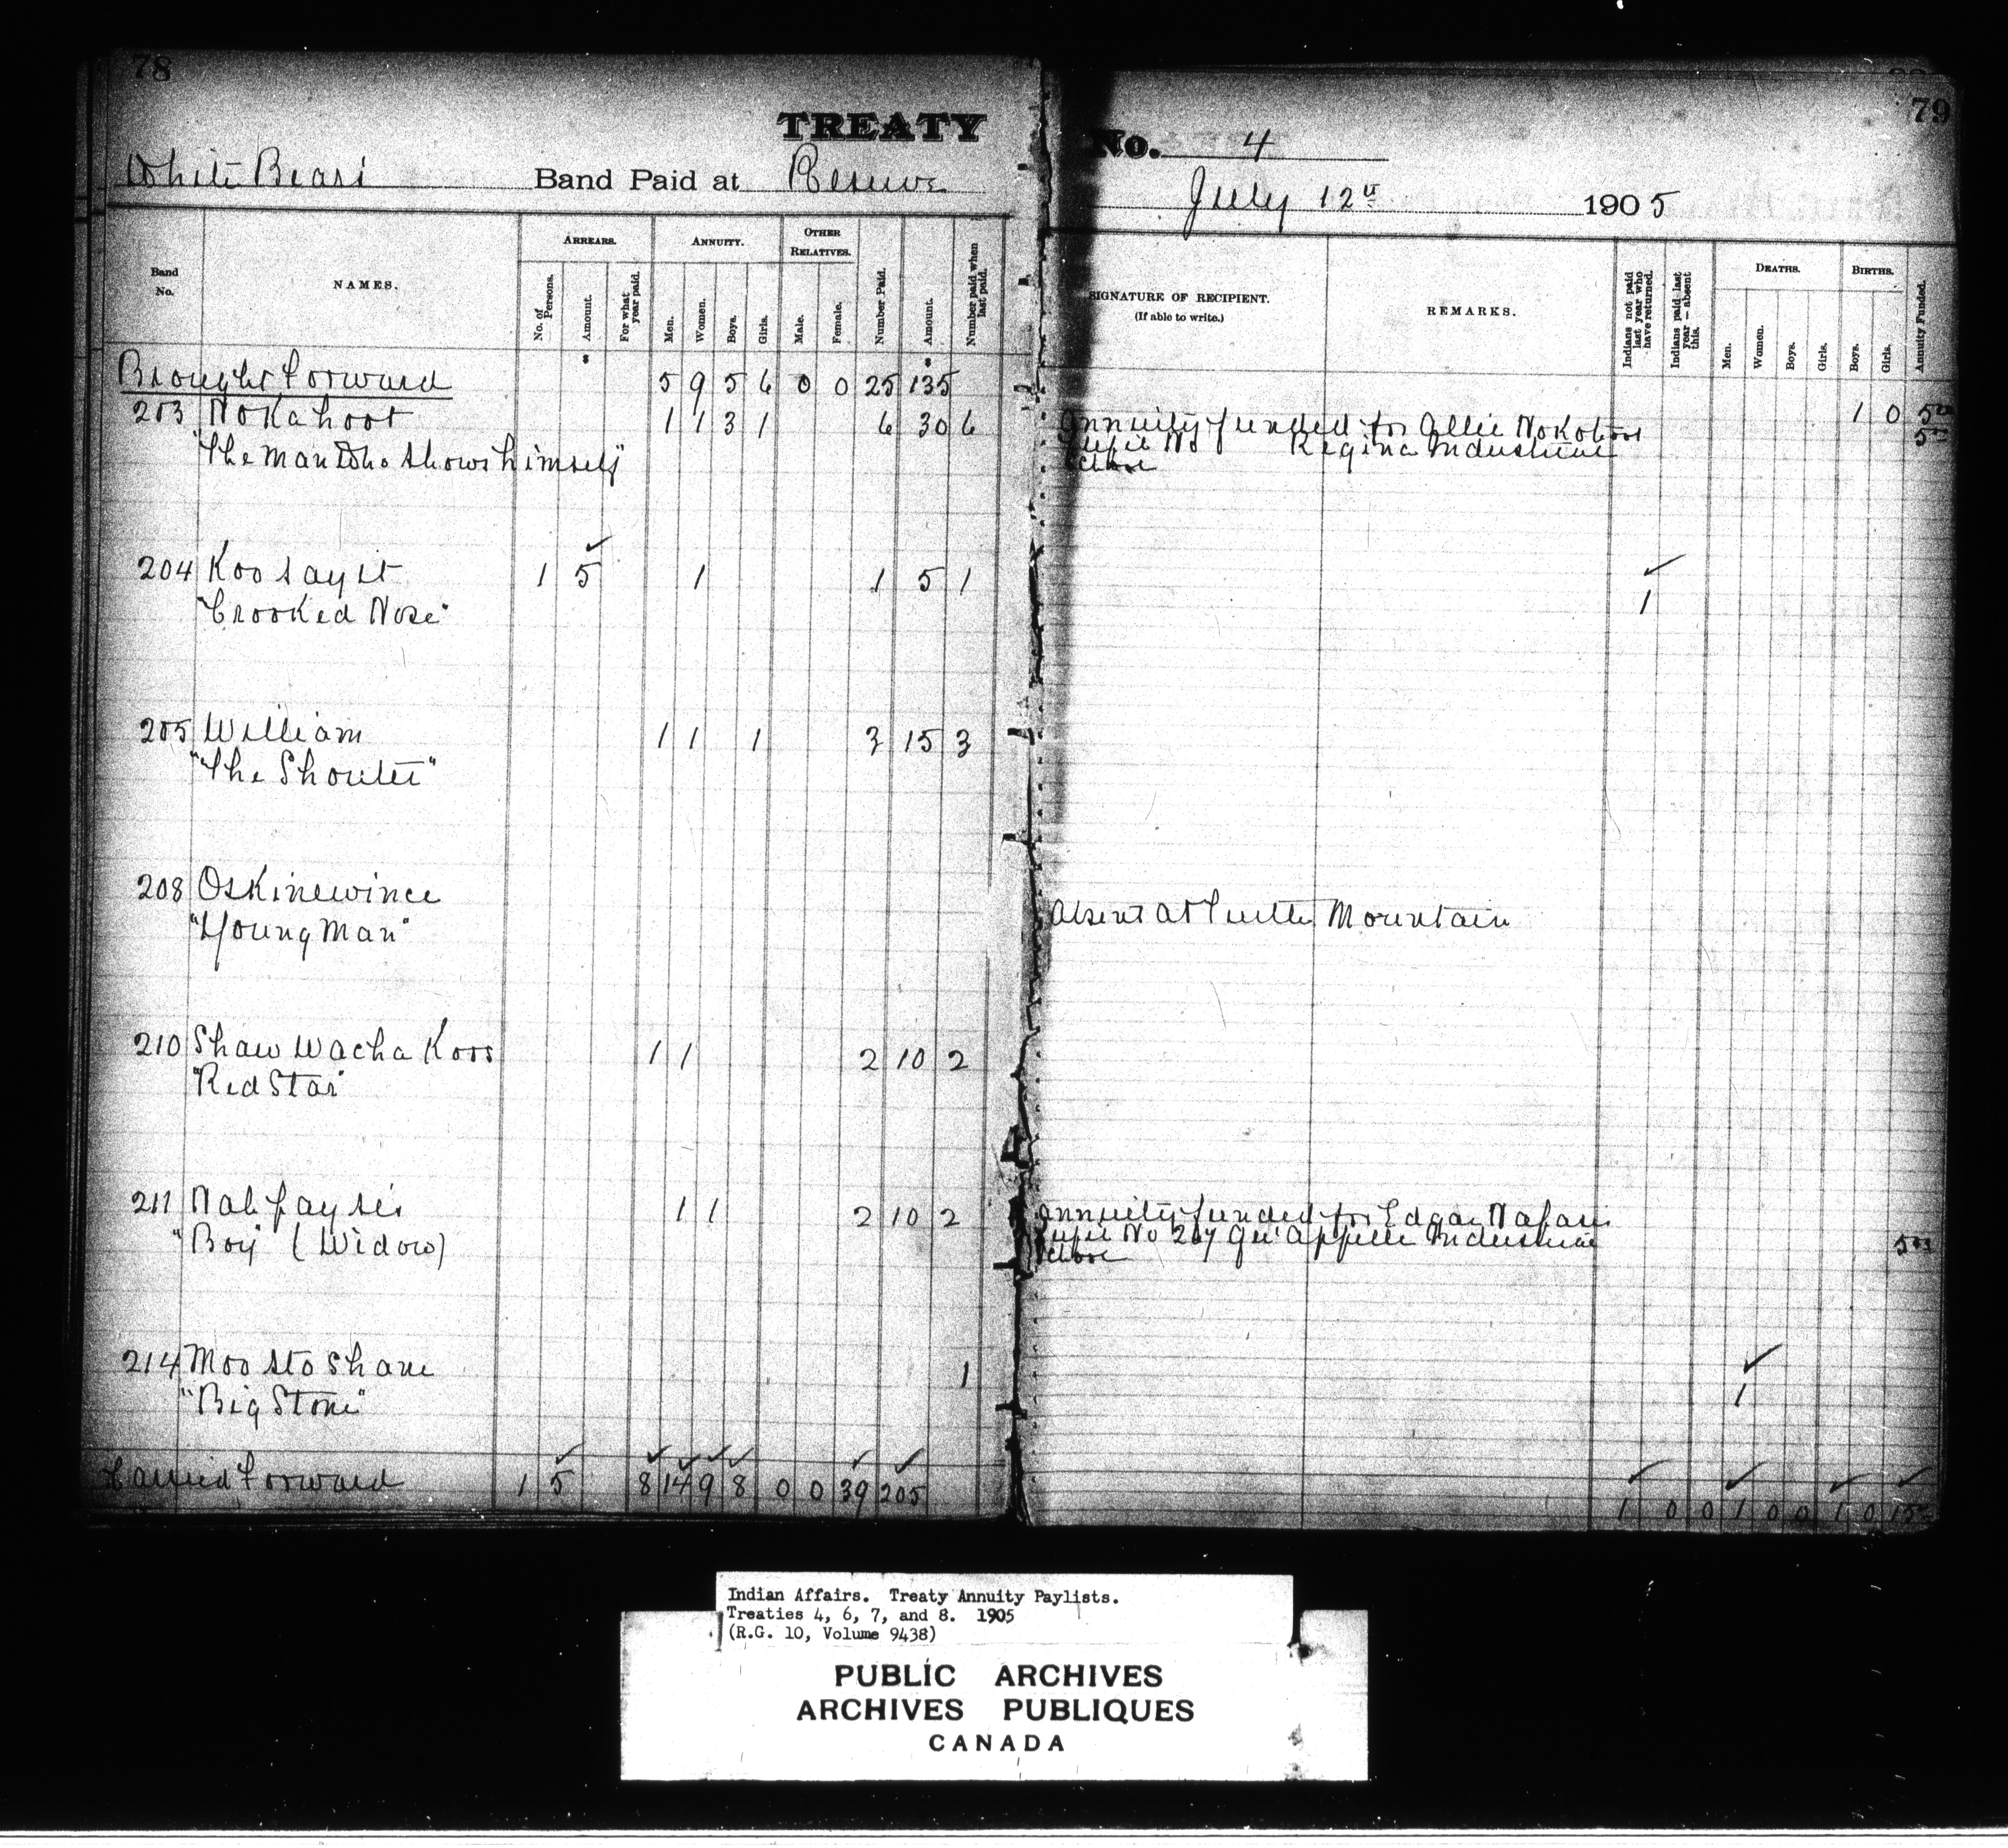 78
79
TREATY No. 4
White Bears Band Paid at Reserve July 12th 1905
Band No.
NAMES.
ARREARS.
No. of Persons.
Amount.
For what year paid.
ANNUITY.
Men.
Women.
Boys.
Girls.
OTHER RELATIVES.
Male.
Female.
Number Paid.
Amount.
Number paid when last paid.
SIGNATURE OF RECIPIENT.
(If able to write.)
REMARKS.
Indians not paid last year who have returned.
Indians paid last year — absent this.
DEATHS.
Men.
Women.
Boys.
Girls.
BIRTHS.
Boys.
Girls.
Annuity Funded.
Brought Forward 5 9 5 6 0 0 25 135 1 0 5 00
203 Nokahoot 1 1 3 1 6 30 6 Annuity funded for Allie Nokohoot 5 00
"The Man Who Shows himself" Pupil No Regina Industrial
School
204 Koosayit 1 5 1 1 5 1
"Crooked Nose" 1
205 William 1 1 1 3 15 3
"The Shouter"
208 Oskinewince
"Young Man" Absent at Turtle Mountain
210 Shaw wacha Koos 1 1 2 10 2
"Red Star"
211 Nah pay sis 1 1 2 10 2 Annuity funded for Edgar Napasis
"Boy" (Widow) Pupil No 267 Qu'Appelle Industrial 5 00
School
214 Moostoshane 1
"Big Stone" 1
Carried Forward 1 5 8 14 9 8 0 0 39 205 1 0 0 1 0 0 1 0 15 00
Indian Affairs. Treaty Annuity Paylists.
Treaties 4, 6, 7, and 8. 1905
(R.G. 10, Volume 9438)
PUBLIC ARCHIVES
ARCHIVES PUBLIQUES
CANADA